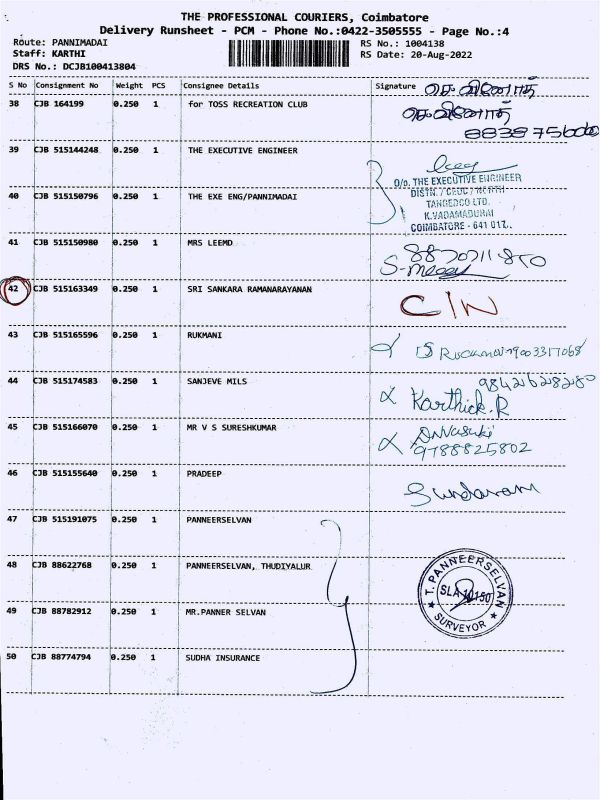 THE PROFESSIONAL COURIERS, Coimbatore
Delivery Runsheet - PCM - Phone No.:0422-3505555 - Page No.:4
Route: PANNIMADAI
Staff: KARTHI
DRS No.: DCJB100413804
RS No.: 1004138
RS Date: 20-Aug-2022
S No Consignment No Weight PCS Consignee Details Signature
செ.வினோத்
38 CJB 164199 0.250 1 for TOSS RECREATION CLUB செ.வினோத்
39 CJB 515144248 0.250 1 THE EXECUTIVE ENGINEER
O/o. THE EXECUTIVE ENGINEER
40 CJB 515150796 0.250 1 THE EXE ENG/PANNIMADAI
TANGEDCO LTD.
K.VADAMADURAI
COIMBATORE - 641 017.
41 CJB 515150980 0.250 1 MRS LEEMD
42 CJB 515163349 0.250 1 SRI SANKARA RAMANARAYANAN C/N
43 CJB 515165596 0.250 1 RUKMANI
44 CJB 515174583 0.250 1 SANJEVE MILS
9842628280
Karthick.R
45 CJB 515166070 0.250 1 MR V S SURESHKUMAR
9788825802
46 CJB 515155640 0.250 1 PRADEEP Sundaram
47 CJB 515191075 0.250 1 PANNEERSELVAN
48 CJB 88622768 0.250 1 PANNEERSELVAN, THUDIYALUR
T. PANNEERSELVAN
SLA
SURVEYOR
49 CJB 88782912 0.250 1 MR.PANNER SELVAN
50 CJB 88774794 0.250 1 SUDHA INSURANCE